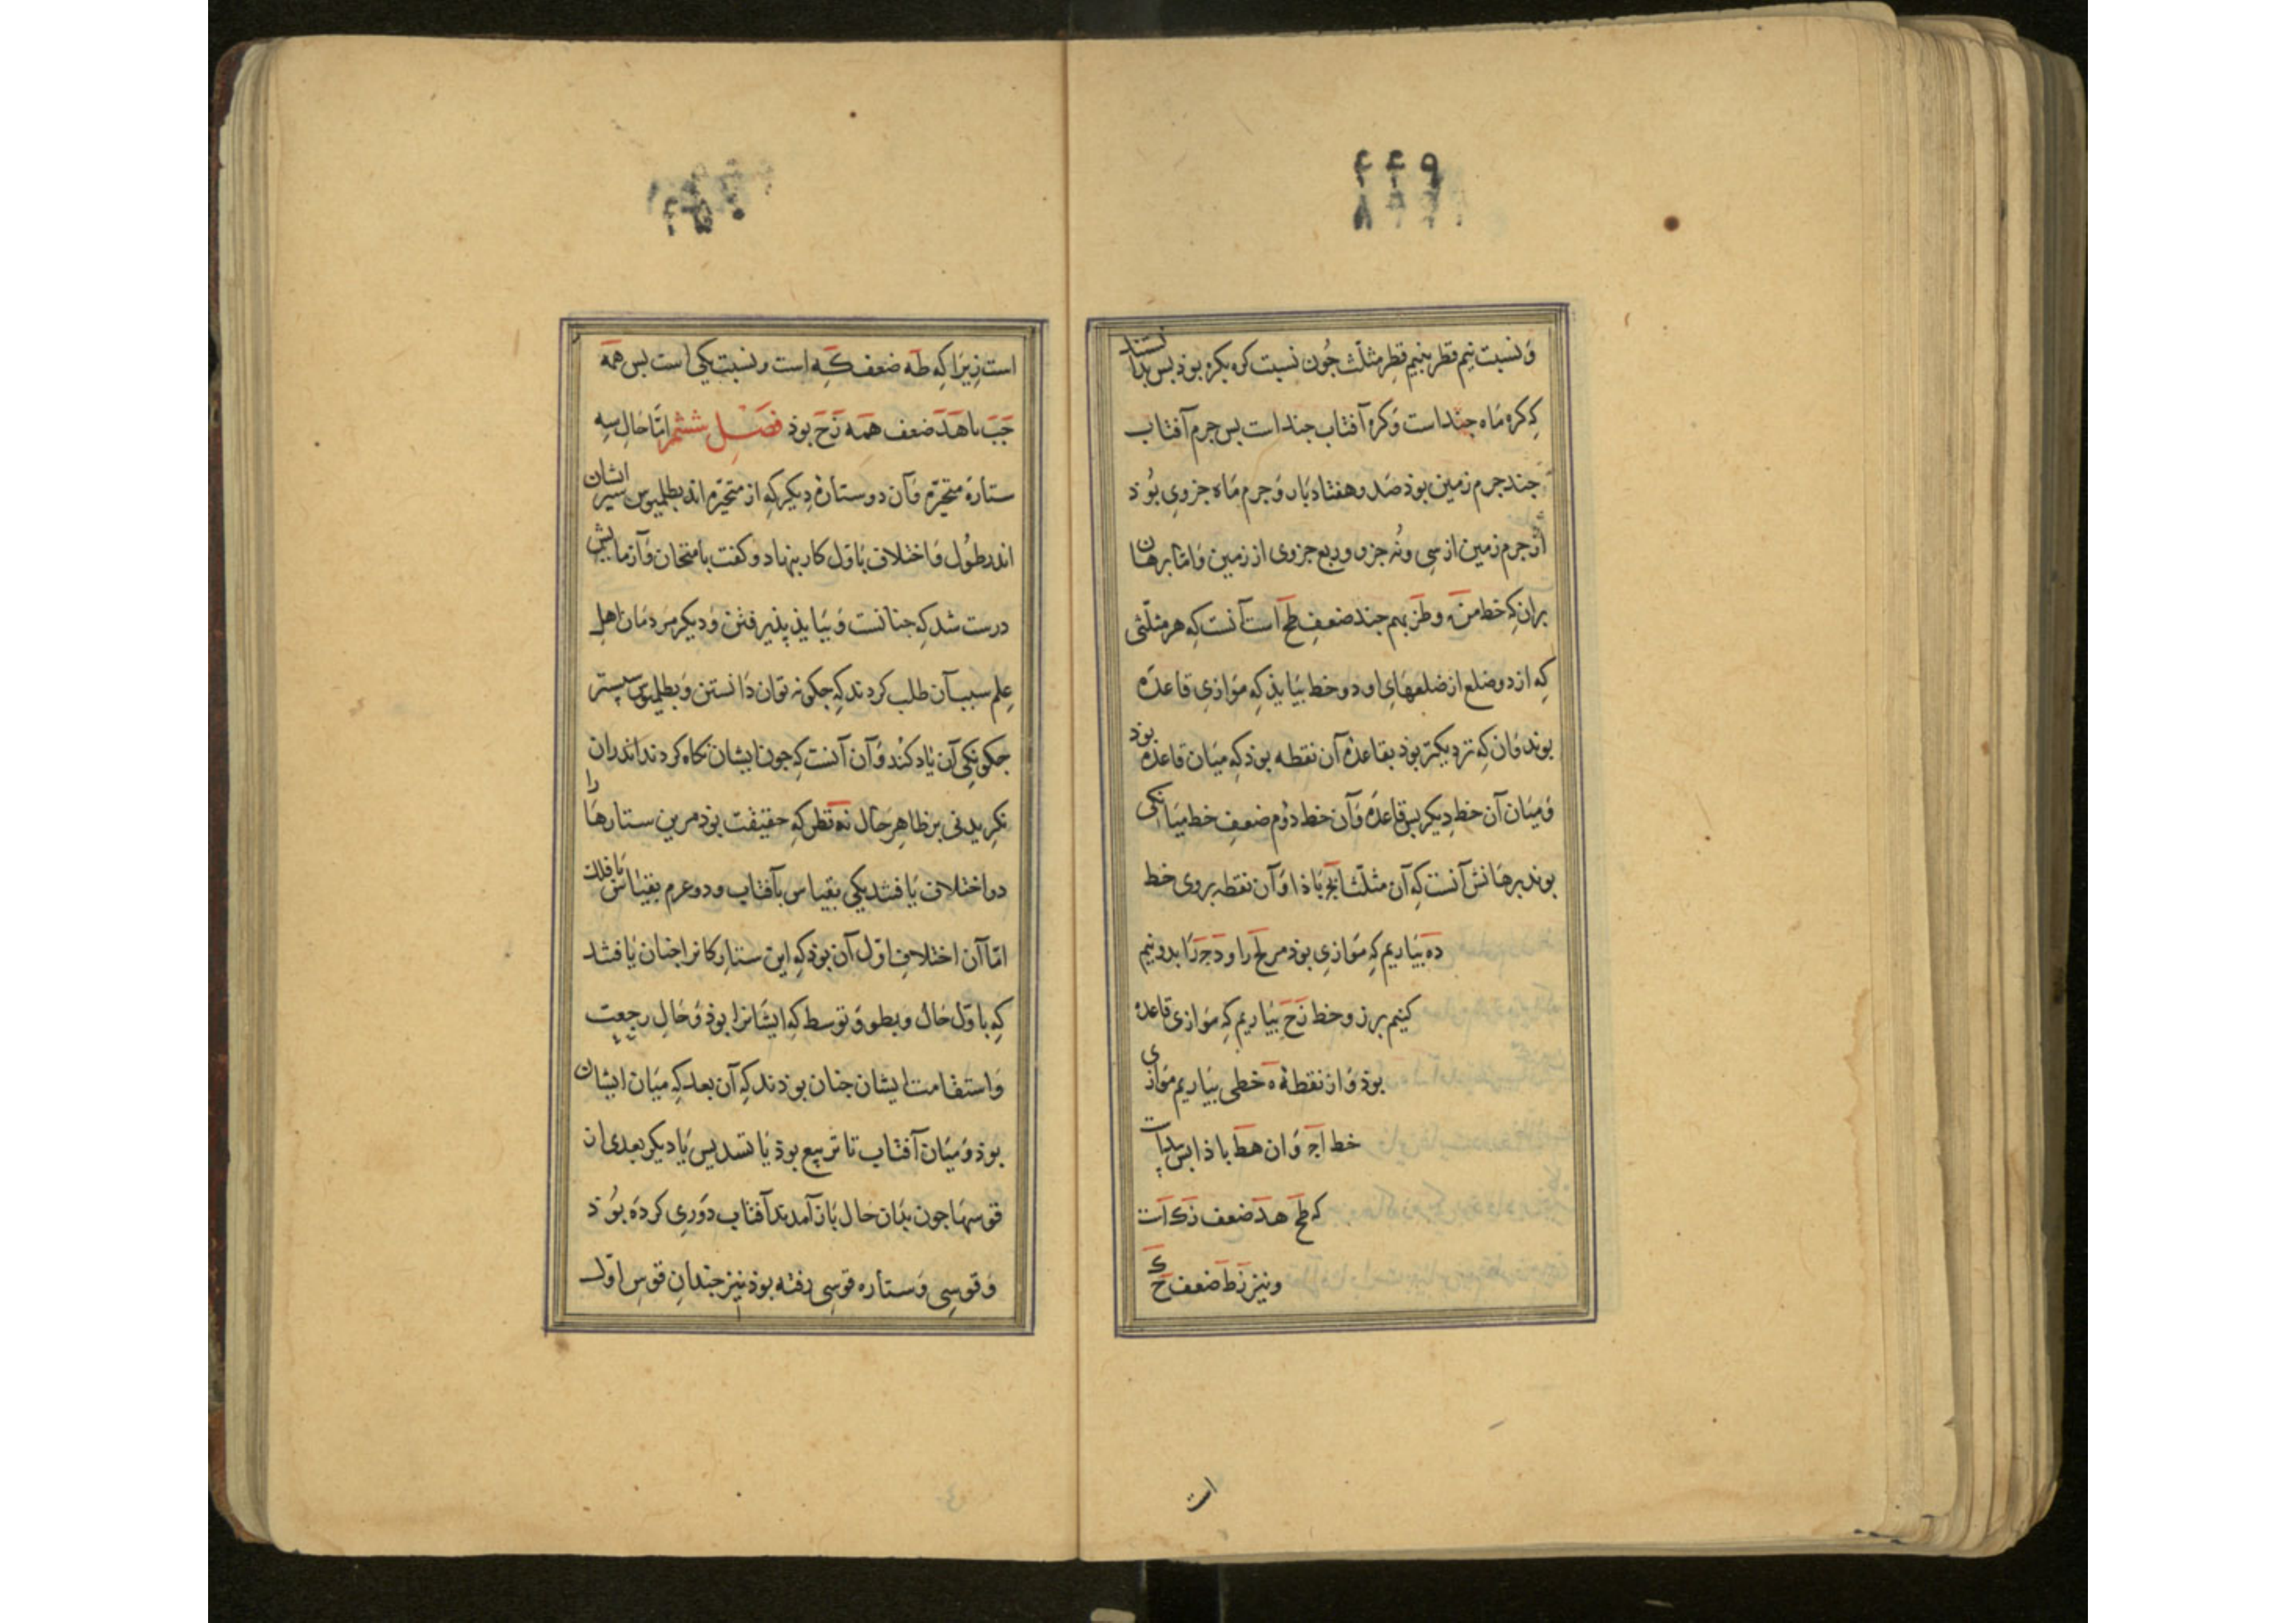 ۴۴۹
و نسبت نیم قطر بنیم قطر مثلث جون نسبت کره بکره بوذ بس بدانستند
که کره ماه جنداست و کره آفتاب جنداست بس جرم آفتاب
جند جرم زمین بوذ صد و هفتاد بار و جرم ماه جزوی بوذ
از جرم زمین از سی و نه جزو و ربع جزوی از زمین و اما برهان
بران که خط من و طز بهم جند ضعف طح است آنست که هر مثلثی
که از دو ضلع از ضلعهای او دو خط بیاید که موازی قاعده
بوند و ان که نزدیکتر بوذ بقاعده آن نقطه بوذ که میان قاعده بوذ
و میان آن خط دیکر بس قاعده و آن خط دوم ضعف خط میانکی
بوند برهانش آنست که آن مثلث ابج باذا و آن نقطه بروی خط
ده بیاریم که موازی بوذ مر بج را و دج را بدو نیم
کنیم بر ز و خط زح بیاریم که موازی قاعده
بوذ و از نقطه ه خطی بیاریم موازی
خط اج و ان هط باذا بس
که طح هد ضعف زک است
و نیز زط ضعف حک
است
است زیرا که طه ضعف که است و نسبت یکی است بس همه
جب با هد ضعف همه زح بوذ فصل ششم اما حال سه
ستاره متحیره و آن دو ستاره دیکر که از متحیره اند بطلمیوس سیر ایشان
اندر طول و اختلاف باول کار بنهاد و کفت بامتحان و آزمایش
درست شد که جنانست و بباید پذیرفتن و دیکر مردمان اهل
علم سبب آن طلب کردند که جکونه توان دانستن و بطلمیوس سپستر
جکونکی آن یاد کند و آن آنست که جون ایشان نکاه کردند اندران
نکریدنی بر ظاهر حال نه نظری که حقیقت بوذ مرین ستارها را
دو اختلاف یافتند یکی بقیاس بآفتاب و دوعرم بقیاس بافلک
اما آن اختلاف اول آن بوذ که این ستارکانرا جنان یافتند
که باول حال و بطو و توسط که ایشانرا بوذ و حال رجعت
و استقامت ایشان جنان بوذند که آن بعد که میان ایشان
بوذ و میان آفتاب تا تربیع بوذ یا تسدیس یا دیکر بعدی ان
قوسها جون بدان حال باز آمدند آفتاب دوری کرده بوذ
و قوسی و ستاره قوسی رفته بوذ نیز جندان قوس اول